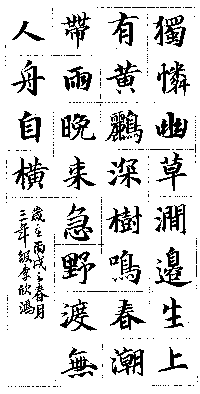 獨憐幽草澗邊生上
有黃鸝深樹鳴春潮
帶雨晚来急野渡無
人舟自橫
歲在丙戌之春月
三年級李欣鴻